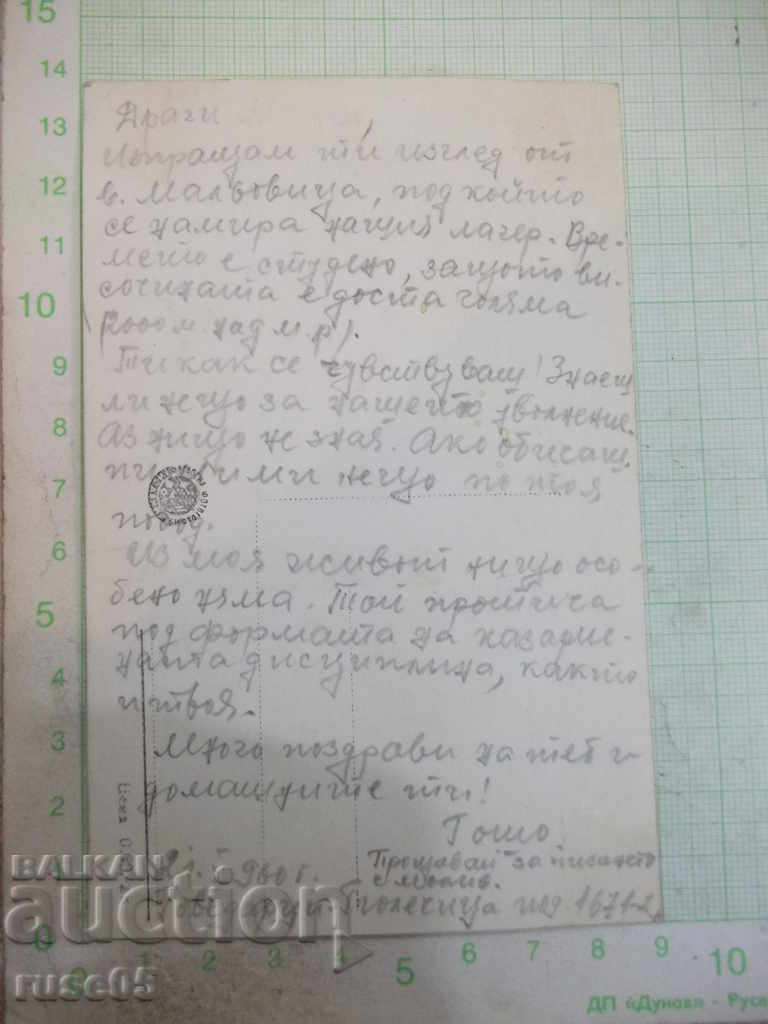 Драги ,
Изпращам ти изглед от
в. Мальовица, под който
се намира нащия лагер. Вре-
мето е студено, защото ви-
сочината е доста голяма
2000 м. над м. р).
Ти как се чувствуваш! Знаеш
ли нещо за нашето уволнение.
Аз нищо не зная. Ако обичаш,
пиши ми нещо по тоя
повод.
Из моя живот нищо осо-
бено няма. Той протича
под формата на казарме-
ната дисциплина, както
и твоя.
Много поздрави на теб и
домашните ти!
Гошо
1960 г.
Прощавай за писането
с молив.
под. 16712
Цена 0.
15
14
13
12
11
10
9
8
7
6
5
4
3
2
1
0
1
2
3
4
5
6
7
8
9
10
ДП «Дунав» - Русе
BALKAN
auction
ruse05